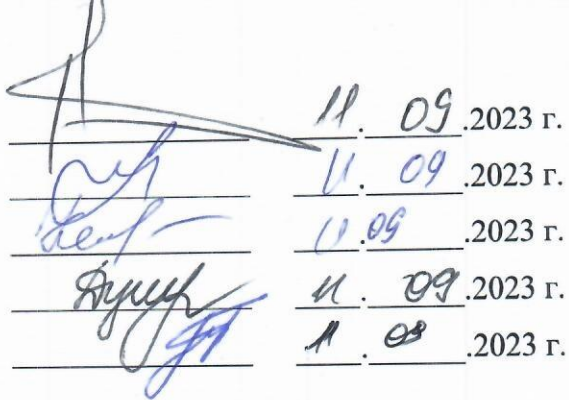 11. 09.2023 г.
11. 09.2023 г.
11.09.2023 г.
11. 09.2023 г.
11. 09.2023 г.